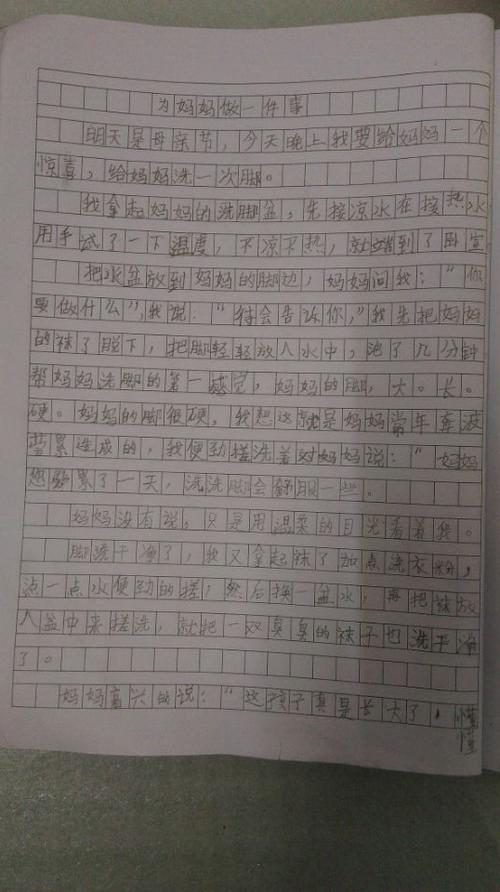 为妈妈做一件事
明天是母亲节，今天晚上我要给妈妈一个
惊喜，给妈妈洗一次脚。
我拿起妈妈的洗脚盆，先接凉水在接热水
用手试了一下温度，不凉不热，就端到了卧室
把水盆放到妈妈的脚边，妈妈问我：“你
要做什么”，我说：“待会告诉你，”我先把妈妈
的袜了脱下，把脚轻轻放入水中，泡了几分钟
帮妈妈洗脚的第一感觉，妈妈的脚，大。长。
硬。妈妈的脚很硬，我想这就是妈妈常年奔波
劳累造成的，我便劲搓洗着对妈妈说：“妈妈
您劳累了一天，洗洗脚会舒服一些。
妈妈没有说，只是用温柔的目光看着我。
脚洗干净了，我又拿起袜了加点洗衣粉，
点一点水便劲的搓，然后换一盆水，再把袜放
入盆中来搓洗，就把一双臭臭的袜子也洗干净
了。
妈妈高兴的说：“这孩子真是长大了，懂
懂